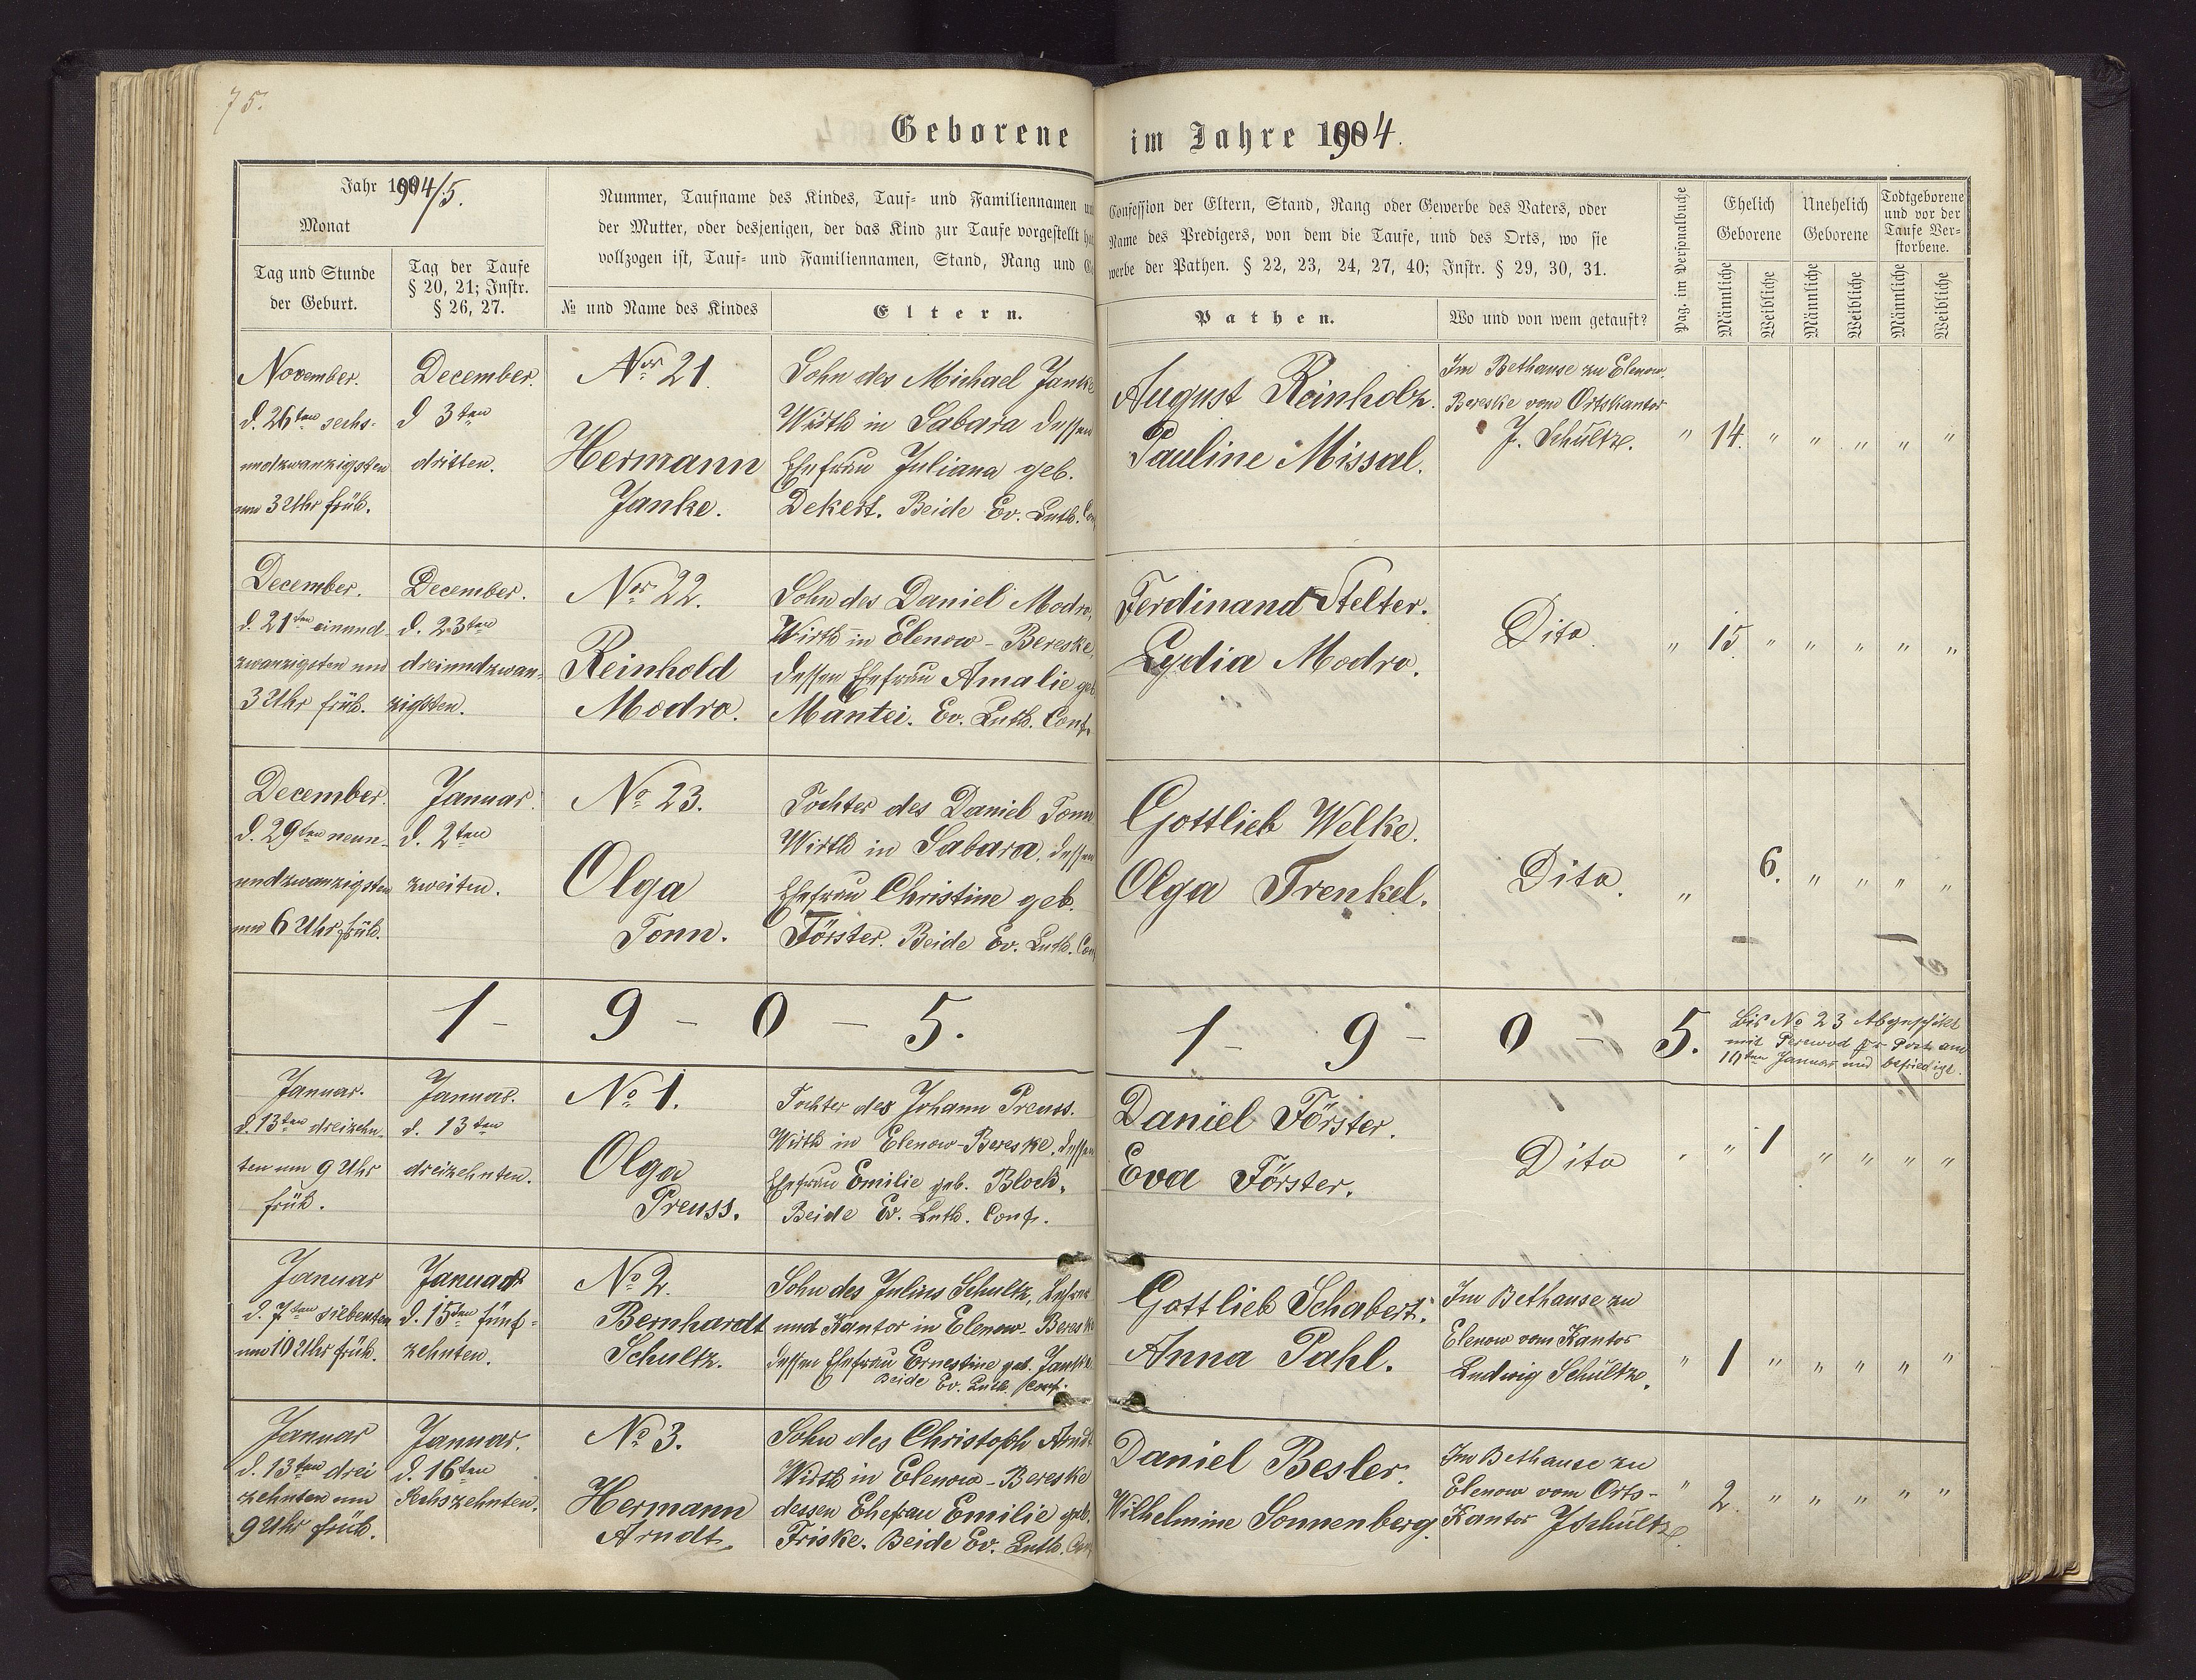 75.
Geborene im Jahre 1904.
Jahr 1904/5.
Monat
Tag und Stunde
der Geburt.
Tag der Taufe
§ 20, 21; Instr.
§ 26, 27.
Nummer, Taufname des Kindes, Tauf- und Familiennamen
der Mutter, oder desjenigen, der das Kind zur Taufe vorgestellt
vollzogen ist, Tauf- und Familiennamen, Stand, Rang und
№ und Name des Kindes
Eltern.
Confession der Eltern, Stand, Rang oder Gewerbe des Vaters, oder
Name des Predigers, von dem die Taufe, und des Orts, wo sie
werbe der Pathen. § 22, 23, 24, 27, 40; Instr. § 29, 30, 31.
Pathen.
Wo und von wem getauft?
Pag. im Personalbuche
Ehelich
Geborene
Unehelich
Geborene
Todtgeborene
und vor der
Taufe Ver-
storbene.
Männliche
Weibliche
Männliche
Weibliche
Männliche
Weibliche
November.
d. 26ten sechs-
undzwanzigsten
um 3 Uhr früh.
December.
d 3ten
dritten.
Nor 21.
Hermann
Janke.
Sohn des Michael Janke
Wirth in Sabara dessen
Ehefrau Juliana geb.
Dekert. Beide Ev. Luth.
August Reinholz.
Pauline Missal.
Im Bethause zu Elenow.
Bereske vom Ortskantor
J. Schultz.
" 14. " " " " "
December.
d. 21ten einund-
zwanzigsten um
3 Uhr früh.
December.
d. 23ten
dreiundzwan-
zigsten.
Nor 22.
Reinhold
Modro.
Sohn des Daniel Modro,
Wirth in Elenow-Bereske,
dessen Ehefrau Amalie geb
Mantei. Ev. Luth. Conf.
Ferdinand Stelter.
Lydia Modro.
Dito.
" 15. " " " " "
December.
d. 29ten neun-
undzwanzigsten
um 6 Uhr früh.
Januar.
d. 2ten
zweiten.
No 23.
Olga
Tonn.
Tochter des Daniel Tonn
Wirth in Sabara, dessen
Ehefrau Christine geb.
Förster. Beide Ev. Luth.
Gottlieb Welke.
Olga Trenkel.
Dito.
" 6. " " " "
1 - 9 - 0 - 5.
1 - 9 - 0 - 5.
Bis No 23 Abgeschikt
mit Perewod pr Post am
10ten Januar und befriedigt.
Januar.
d. 13ten dreizehn-
ten um 9 Uhr
früh.
Januar.
d. 13ten
dreizehnten.
No 1.
Olga
Preuss.
Tochter des Johann Preuss.
Wirth in Elenow-Bereske, dessen
Ehefrau Emilie geb. Bloch.
Beide Ev. Luth. Conf.
Daniel Förster.
Eva Förster.
Dito
" " 1 " " " "
Januar
d. 7ten siebenten
um 10 Uhr früh.
Januar
d. 15ten fünf-
zehnten.
No 2.
Bernhardt
Schultz.
Sohn des Julius Schultz, Lehrer
und Kantor in Elenow-Bereske
dessen Ehefrau Ernestine geb. Janke.
Beide Ev. Luth. Conf.
Gottlieb Schabert.
Anna Pahl.
Im Bethause zu
Elenow vom Kantor
Ludwig Schultz.
" 1 " " " " "
Januar
d. 13ten drei
zehnten um
9 Uhr früh.
Januar.
d. 16ten
Sechszehnten.
No 3.
Hermann
Arndt.
Sohn des Christoph Arndt
Wirth in Elenow-Bereske
dessen Ehefrau Emilie geb.
Friske. Beide Ev. Luth.
Daniel Besler.
Wilhelmine Sonnenberg.
Im Bethause zu
Elenow vom Orts-
Kantor JSchultz.
" 2. " " " " "